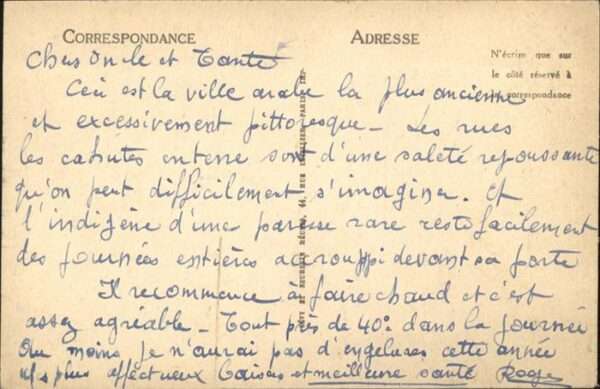 CORRESPONDANCE
ADRESSE
N'écrire que sur
le côté réservé à
la correspondance
Chers Oncle et Tante
Ceci est la ville arabe la plus ancienne
et excessivement pittoresque - Les rues
les cahutes en terre sont d'une saleté repoussante
qu'on peut difficilement s'imaginer. Et
l'indigène d'une paresse rare reste facilement
des journées entières accroupi devant sa porte
Il recommence à faire chaud et c'est
assez agréable - Tout près de 40° dans la journée
Au moins je n'aurai pas d'engelures cette année
plus affectueux baisers et meilleure santé Roger